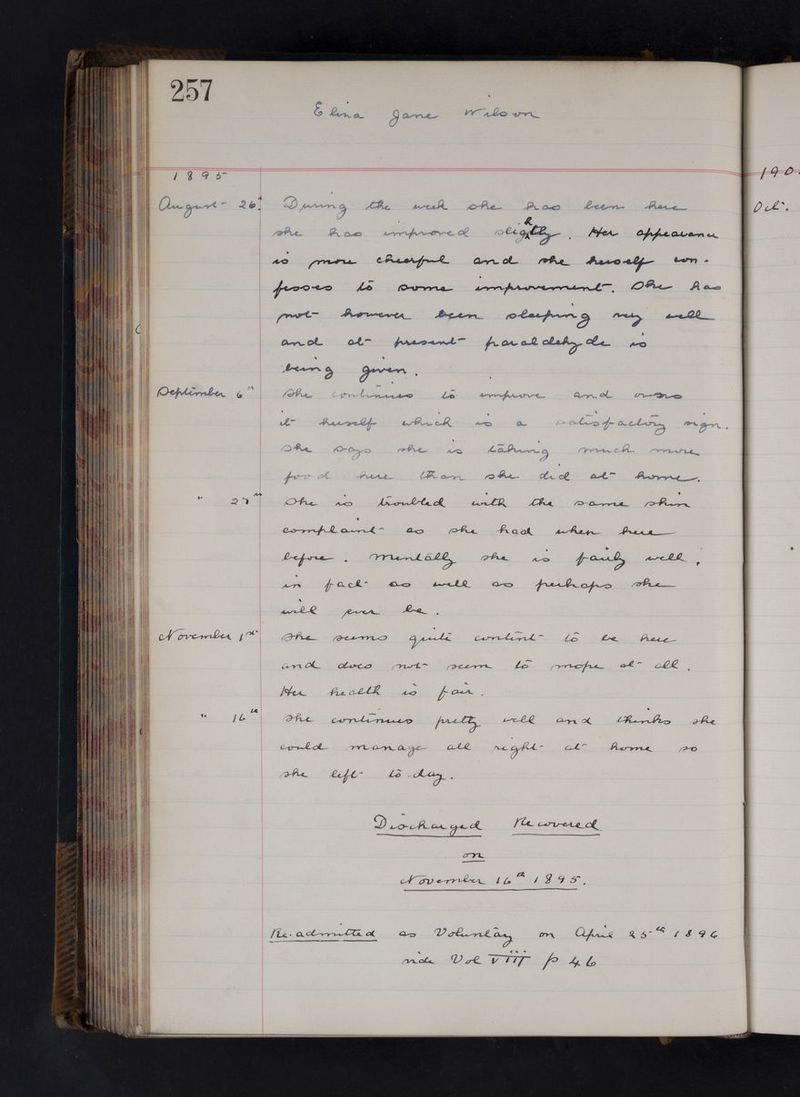 257
Elina Jane Wilson
1895
190
August 26. During the week she has been here
Oct.
she has improved slightly. Her appearance
is more cheerful and she herself con-
fesses to some improvement. She has
not however been sleeping very well
and at present paraldehyde is
being given.
September 6th She continues to improve and owns
it herself which is a satisfactory sign.
She says she is taking much more
food here than she did at home.
" 27th She is troubled with the same skin
complaint as she had when here
before. Mentally she is fairly well,
in fact as well as perhaps she
will ever be.
November 1st She seems quite content to be here
and does not seem to mope at all.
Her health is fair.
" 16th She continues pretty well and thinks she
could manage all right at home so
she left to-day.
Discharged Recovered
on
November 16th 1895.
Re-admitted as Voluntary on April 25th 1896
vide Vol VIII p 46